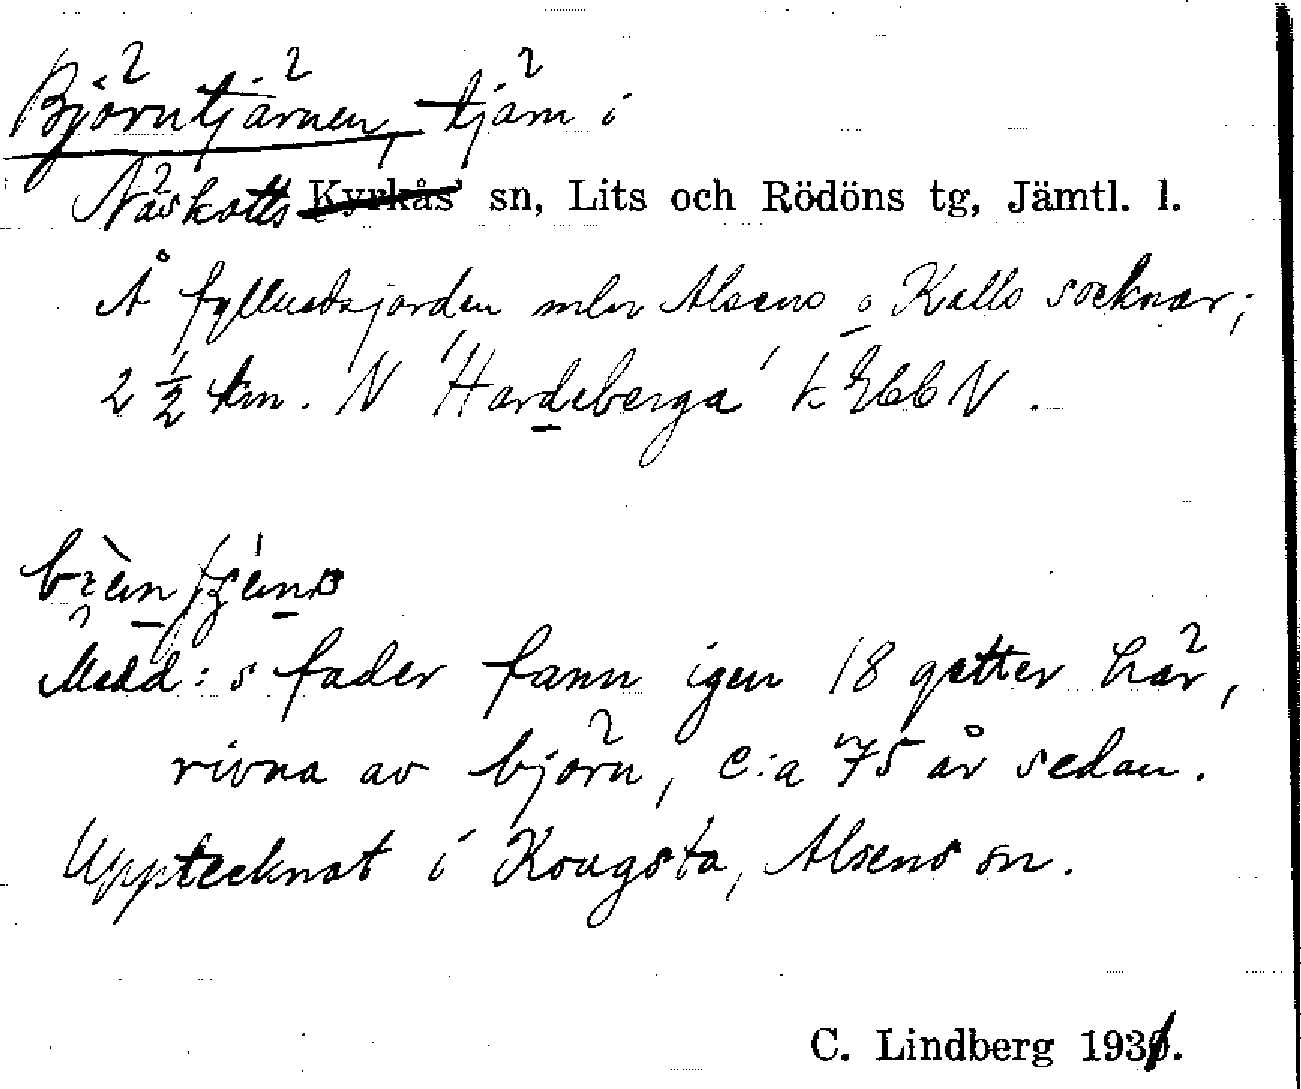 Björntjärnen, tjärn i
Näskotts Kyrkås sn, Lits och Rödöns tg, Jämtl. l.
Å fyllnadsjorden mln Alsens o Kalls socknar;
2 1/2 km. N 'Hardeberga' k. Ebb N.
Medd:s fader fann igen 18 getter här,
rivna av björn, c:a 75 år sedan.
Upptecknat i Kougsta, Alsens sn.
C. Lindberg 1931.